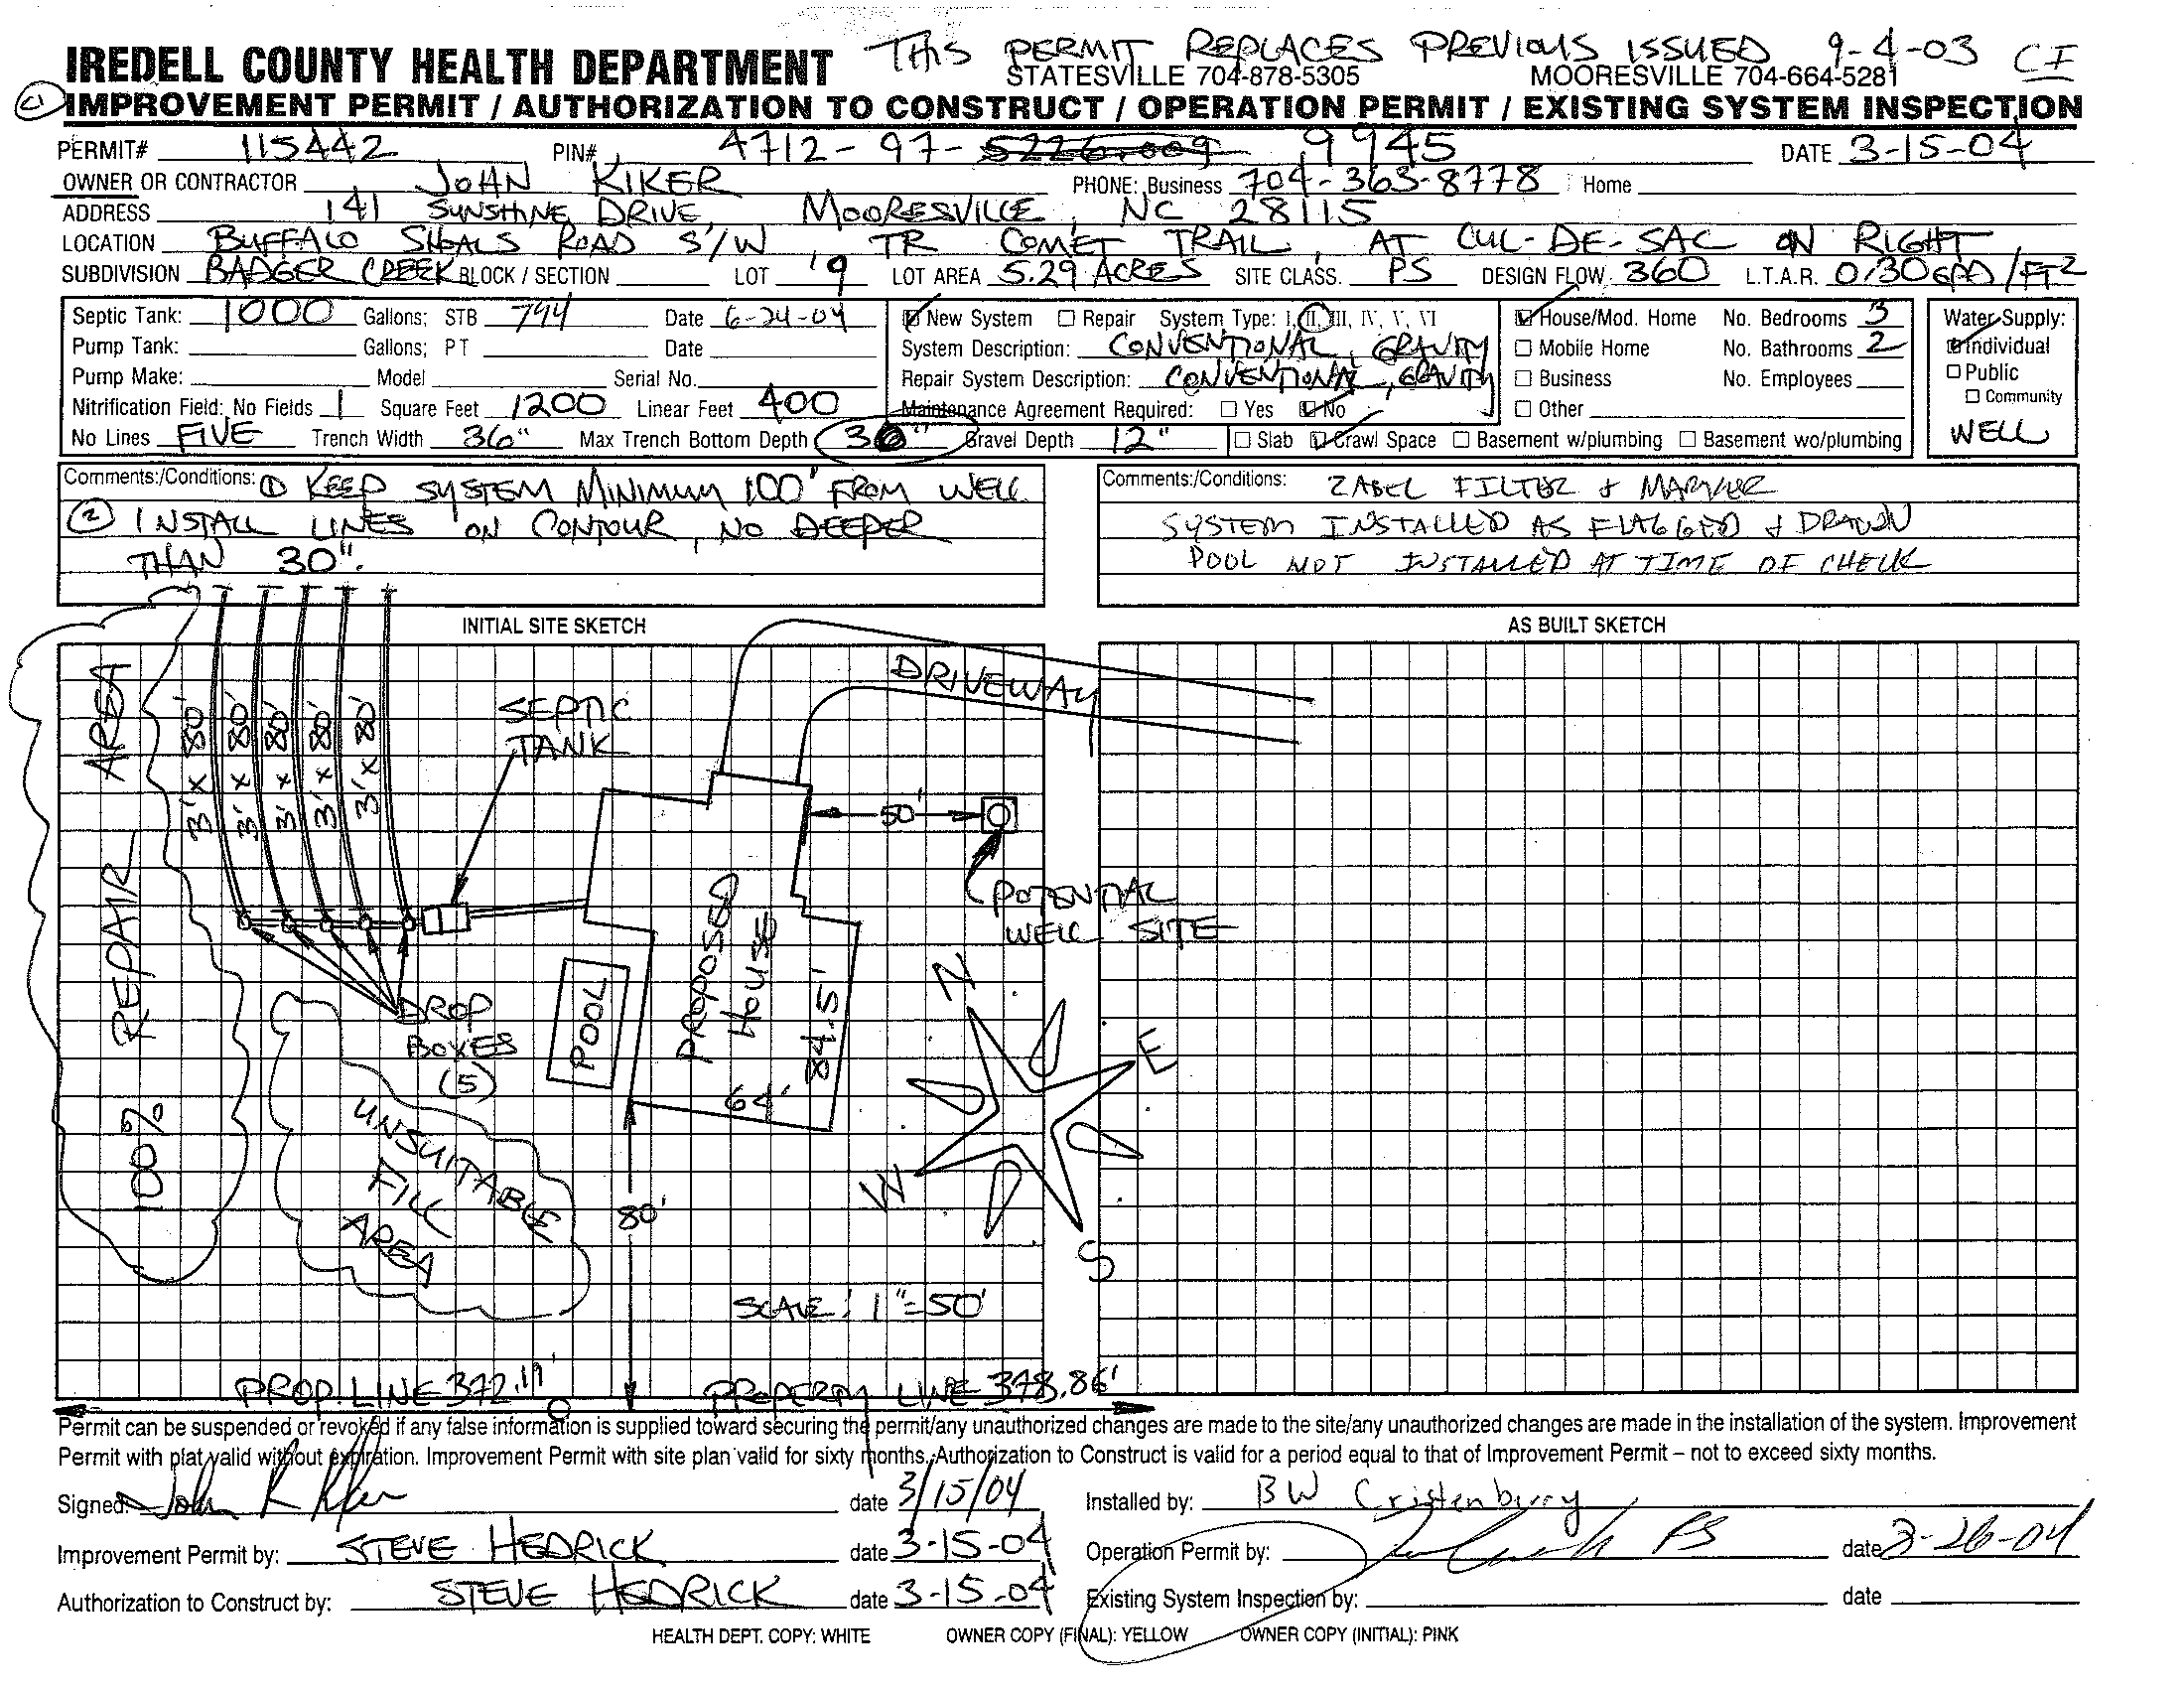 THIS PERMIT REPLACES PREVIOUS ISSUED 9-4-03 CI
IREDELL COUNTY HEALTH DEPARTMENT STATESVILLE 704-878-5305 MOORESVILLE 704-664-5281
IMPROVEMENT PERMIT / AUTHORIZATION TO CONSTRUCT / OPERATION PERMIT / EXISTING SYSTEM INSPECTION
PERMIT# 115442 PIN# 4712-97- 9945 DATE 3-15-04
OWNER OR CONTRACTOR JOHN KIKER PHONE: Business 704-363-8778 Home
ADDRESS 141 SUNSHINE DRIVE, MOORESVILLE, NC 28115
LOCATION BUFFALO SHOALS ROAD S/W, TR COMET TRAIL, AT CUL-DE-SAC ON RIGHT
SUBDIVISION BADGER CREEK BLOCK / SECTION LOT 9 LOT AREA 5.29 ACRES SITE CLASS. PS DESIGN FLOW 360 L.T.A.R. 0.30 GPD/FT2
Septic Tank: 1000 Gallons; STB 794 Date 6-24-04
Pump Tank: Gallons; PT Date
Pump Make: Model Serial No.
Nitrification Field: No Fields 1 Square Feet 1200 Linear Feet 400
No Lines FIVE Trench Width 36" Max Trench Bottom Depth 30" Gravel Depth 12"
New System Repair System Type: I, II, III, IV, V, VI
System Description: CONVENTIONAL, GRAVITY
Repair System Description: CONVENTIONAL, GRAVITY
Maintenance Agreement Required: Yes No
Slab Crawl Space Basement w/plumbing Basement wo/plumbing
House/Mod. Home No. Bedrooms 3
Mobile Home No. Bathrooms 2
Business No. Employees
Other
Water Supply:
Individual
Public
Community
WELL
Comments:/Conditions: ① KEEP SYSTEM MINIMUM 100' FROM WELL
② INSTALL LINES ON CONTOUR, NO DEEPER
THAN 30".
Comments:/Conditions: ZABEL FILTER & MARKER
SYSTEM INSTALLED AS FLAGGED & DRAWN
POOL NOT INSTALLED AT TIME OF CHECK
INITIAL SITE SKETCH
AS BUILT SKETCH
DRIVEWAY
SEPTIC
TANK
3' x 80'
3' x 80'
3' x 80'
3' x 80'
3' x 80'
100% REPAIR AREA
50'
POTENTIAL
WELL SITE
PROPOSED
HOUSE
84.5'
64'
POOL
DROP
BOXES
(5)
UNSUITABLE
FILL
AREA
80'
N
E
W
S
SCALE: 1"=50'
PROP. LINE 372.19'
PROPERTY LINE 378.86'
Permit can be suspended or revoked if any false information is supplied toward securing the permit/any unauthorized changes are made to the site/any unauthorized changes are made in the installation of the system. Improvement
Permit with plat valid without expiration. Improvement Permit with site plan valid for sixty months. Authorization to Construct is valid for a period equal to that of Improvement Permit – not to exceed sixty months.
Signed: John R Kiker date 3/15/04
Installed by: BW Cristenberry
Improvement Permit by: STEVE HEDRICK date 3-15-04
Operation Permit by: RS date
Authorization to Construct by: STEVE HEDRICK date 3-15-04
Existing System Inspection by: date
HEALTH DEPT. COPY: WHITE OWNER COPY (FINAL): YELLOW OWNER COPY (INITIAL): PINK